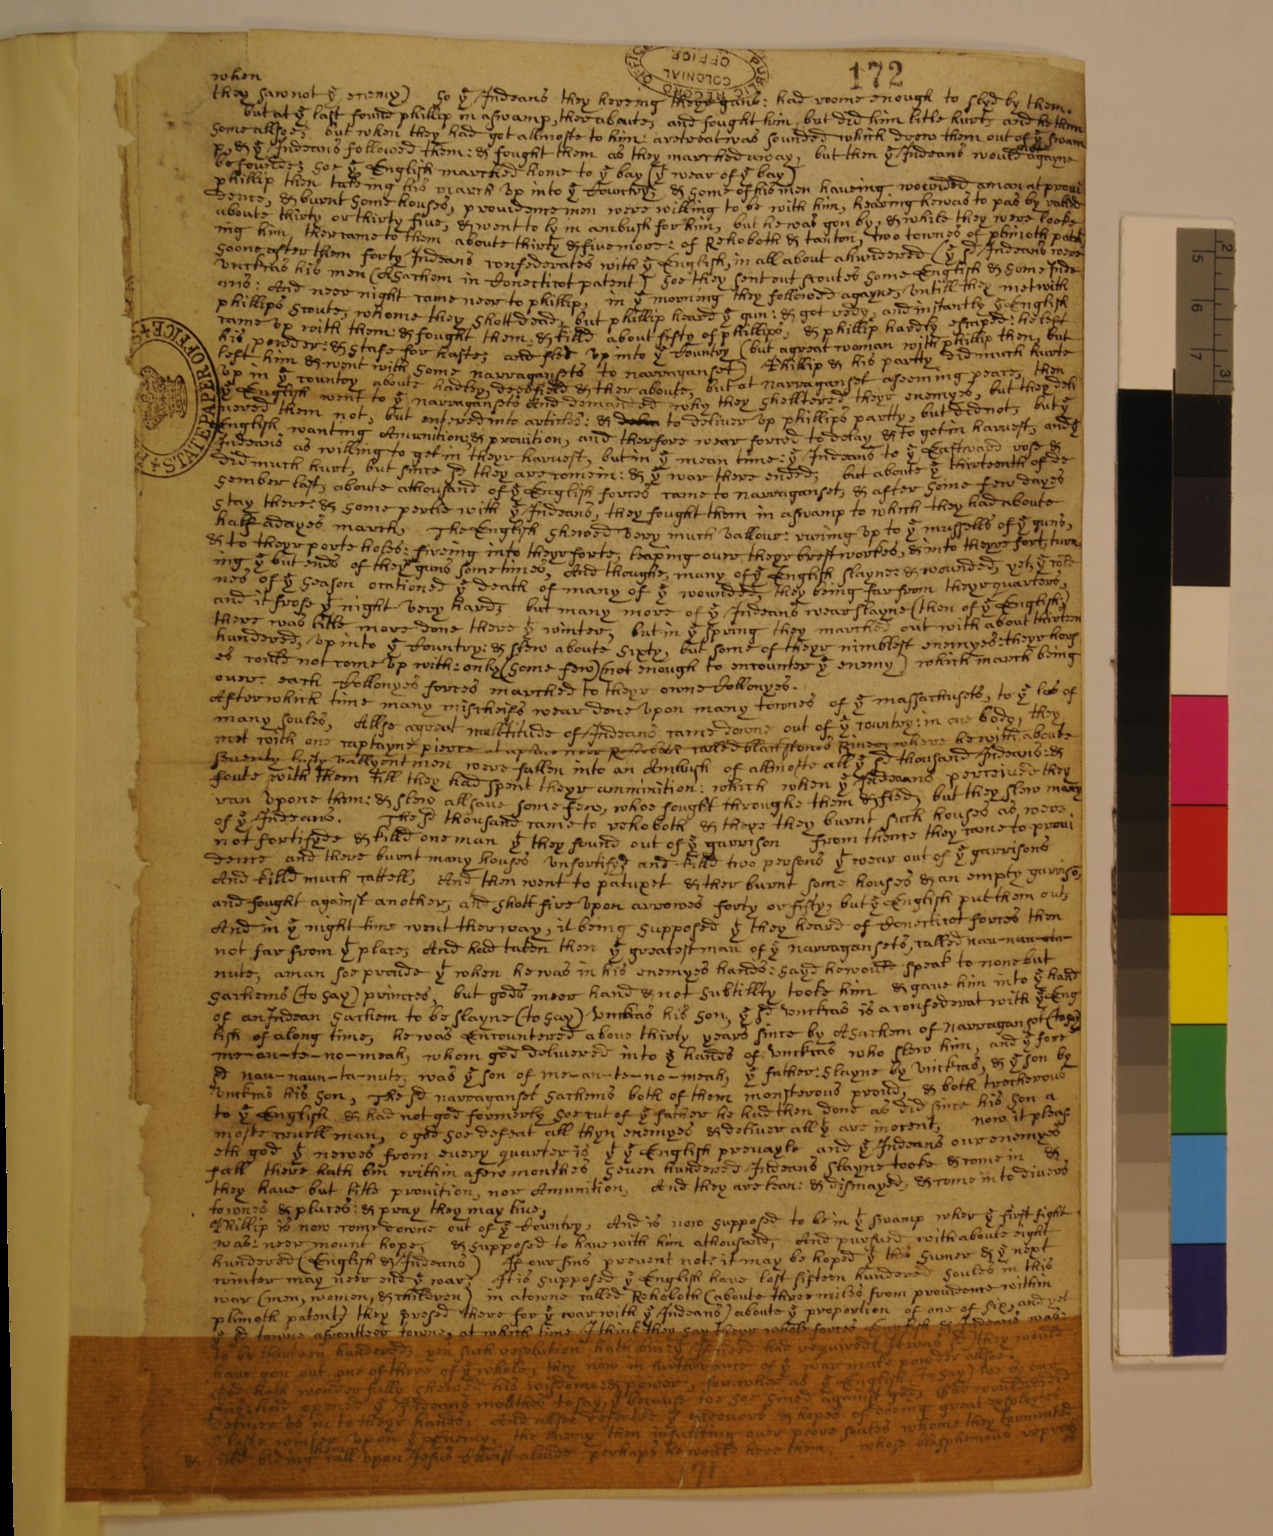 172
PUBLIC RECORD OFFICE
COLONIAL OFFICE
STATE PAPER OFFICE
when
they saw not ye enemy) so ye Indeans they heveing theyr guns: had roome enough to slyd by them.
but at ye last found phillip in a swamp, there aboute, and fought him, but did him litle hurt, and he them
some allsoe; but when they had got allmoste to him: a retreat was sounded which drew them out of ye swam
p, & ye Indeans followed them: & fought them as they marched away, but then ye Indeans would agayne
be soe ye English marched home to ye bay (ye wear of ye bay)
phillip then takeing his march up into ye Country & some of his men haveing wounded a man at provi
dence, & burnt some houses, providence men were willing to be with him, heareing he was to pas by
aboute thirty or thirty five, & went to ly in ambush for him, but he was gon by, & while they were looke
ing him, ther came to them aboute thirty & five more: of Rehoboth & tanton, two townes of plimoth patt
soone after them forty Indeans confederates with ye English, in all about a hundered (ye sd Indeans were
unckas his men (a Sachem in Conecticot patent) soe they sent out scoutes some English & some Inde
ans: And neer night came neer to phillip, in ye morneing they followed agayne, untill they met with
phillips scoute, whome they shott dead, but phillip heard ye gun: & got redy, and instantly ye English
came up with them: & fought them, & killd about fifty of phillips, & phillip hardly escaped: he left
his powder: & stafe for haste, and fled up into ye Country (but a great woman with phillip then, but
left him & went with some narragansets to narraganset) Phillip & his partty did much hurte
up in ye country aboute hadley, deerfield & ther aboute, but at narraganset a seeming peace, then
ye English went to ye narragansets And demanded why they shelltered theyr enemyes, but they deli
vered them not, but entered into articles: & to deliver up phillips partty, but did not, but ye
English wanting Amunition, & provition, and therfore wear forced to delay & to get in harvest, and ye
Indeans as willing to get in theyr harvest, but in ye mean time: ye Indeans to ye Eastward rose &
did much hurt, but since sd they are come in: & ye war there ended; but aboute ye thirteenth of de
sember last, aboute a thousand of ye English forces came to narraganset, & after some few dayes
stay there: & some perlie with ye Indeans, they fought them in a swamp to which they had aboute
half a dayes march, The English shewed very much vallour: runing up to ye mussells of ye guns,
& to theyr porte holes: fireing into theyr forte, leaping over theyr brest workes, & into theyre fort, turn
ing ye but ends of they guns sometimes, And thoughe many of ye English slayne: & wounded, yet ye cold
nes of ye season ocationed ye death of many of ye wounded, they being far from theyr quarters,
and it frose ye night very hard; but many more of ye Indeans wear slayne (then of ye English)
there was litle more done there yt winter, but in ye spring they marched out with about thirteen
hundered, up into ye Country: & slew aboute sixty, but some of theyr nimblest enemyes: theyr hors
es could not come up with: only (some few) (not enough to encounter ye enemy) which march being
over: each Collonyes forces marched to theyr owne Collonyes.
After which time many mischeifs wear done upon many townes of ye massachusets, to ye los of
many soules, Allso a great multitude of Indeans came downe out of ye country: in one body, they
met with one captayne pierce called blackstones River where he with aboute
seventy lusty vallyent men were fallen into an Ambush of allmoste all ye sd thousand Indeans: &
foute with them till they had spent theyr ammunition: which when ye Indeans perceived they
ran upone them: & slew all save some few, whoe fought throughe them & fled; but they slew many
of ye Indeans. The sd thousand came to rehoboth & there they burnt such houses as were
not fortifyde & killd one man yt they found out of ye garrison From thence they came to provi
dence and there burnt many houses unfortifyd and killd two persons yt wear out of ye garrisons
And killd much cattell, And then went to patuxet & ther burnt some houses & an empty garrison,
and fought against another, and shott fire upon arrowes forty or fifty, but ye English put them out,
And in ye night time went ther way, it being supposed yt they heard of Conecticot forces then
not far from yt place, And had taken then ye greatest man of ye narragansets, called nau-naun-ta-
nute, a man soe proude yt when he was in his enemyes hands: sayd he would speak to none but
sachems (to say) princes, but gods meer hand & not subtillty tooke him & gave him into ye hand
of an Indean sachem to be slayne (to say) unckas his son, ye sd unckas is a confederat with ye Eng
lish of a long time, he was Encountered above thirty years since by a Sachem of narraganset (to say)
me-an-te-no-meah, whom god delivered into ye hands of unckas who slew him, and ye fore
sd nau-naun-ta-nute, was ye son of me-an-te-no-meah, ye father: slayne by unckas, & ye son by
unckas his son, The sd narraganset sachems both of them monsterous proud, & both trecherous
to ye English & had not god formerly soe cut of ye father he had then done as did since his son a
moste cruell man, o god soe defeat all thyn enemyes & deliver all yt are inocent, now it pleas
eth god ye newes from every quarter is yt ye English prevayle and ye Indeans our enemyes
fall there hath bin within a few monthes seven hundered Indeans slayne tooke & come in &,
they have but litle provition, nor Amunition, And they are fear: & dismayed, & come in to divers
townes & places: & pray they may live,
Phillip is now come downe out of ye Country, And is now supposed to be in yt swamp wher ye first fight
was: neer mount hope, & supposed to have with him a thousand, And pursued with aboute eight
hundered (English & Indeans) If our sins prevent not: it may be hoped yt this sumer & ye next
winter may neer end ye war, It is supposed ye English have lost fifteen hundered soules in this
war (men, women, & children) in a towne called Rehoboth (aboute three miles from providence within
plimoth patent) they presed there for ye war with ye Indeans) aboute ye proportion of one of six, and yet
ye sd towne a frontteer towne, at which time I think they say theyr whole forces English & Indeans was:
to be thirteen hundered, yea such resolution hath bin yt If need had required (It was sd) they would
have gon out one of three of ye whole, they now in furtherance of ye war make powder allsoe.
God hath wonderfully shewed his wisdome: & power, for wher as ye English (to say) we
had opened ye Indeans mouthes to say, yt because we soe sined against god, God would
deliver us in to theyr hands, And allsoe deserted ye endevors & hopes of doeing great exployts
laste winter upon ye Enemy, the enemy then insulting over poore soules whome they tormented
& bideing them call upon Jesus Christ aloude perhaps he would here them, whose blasphemous reproch
171